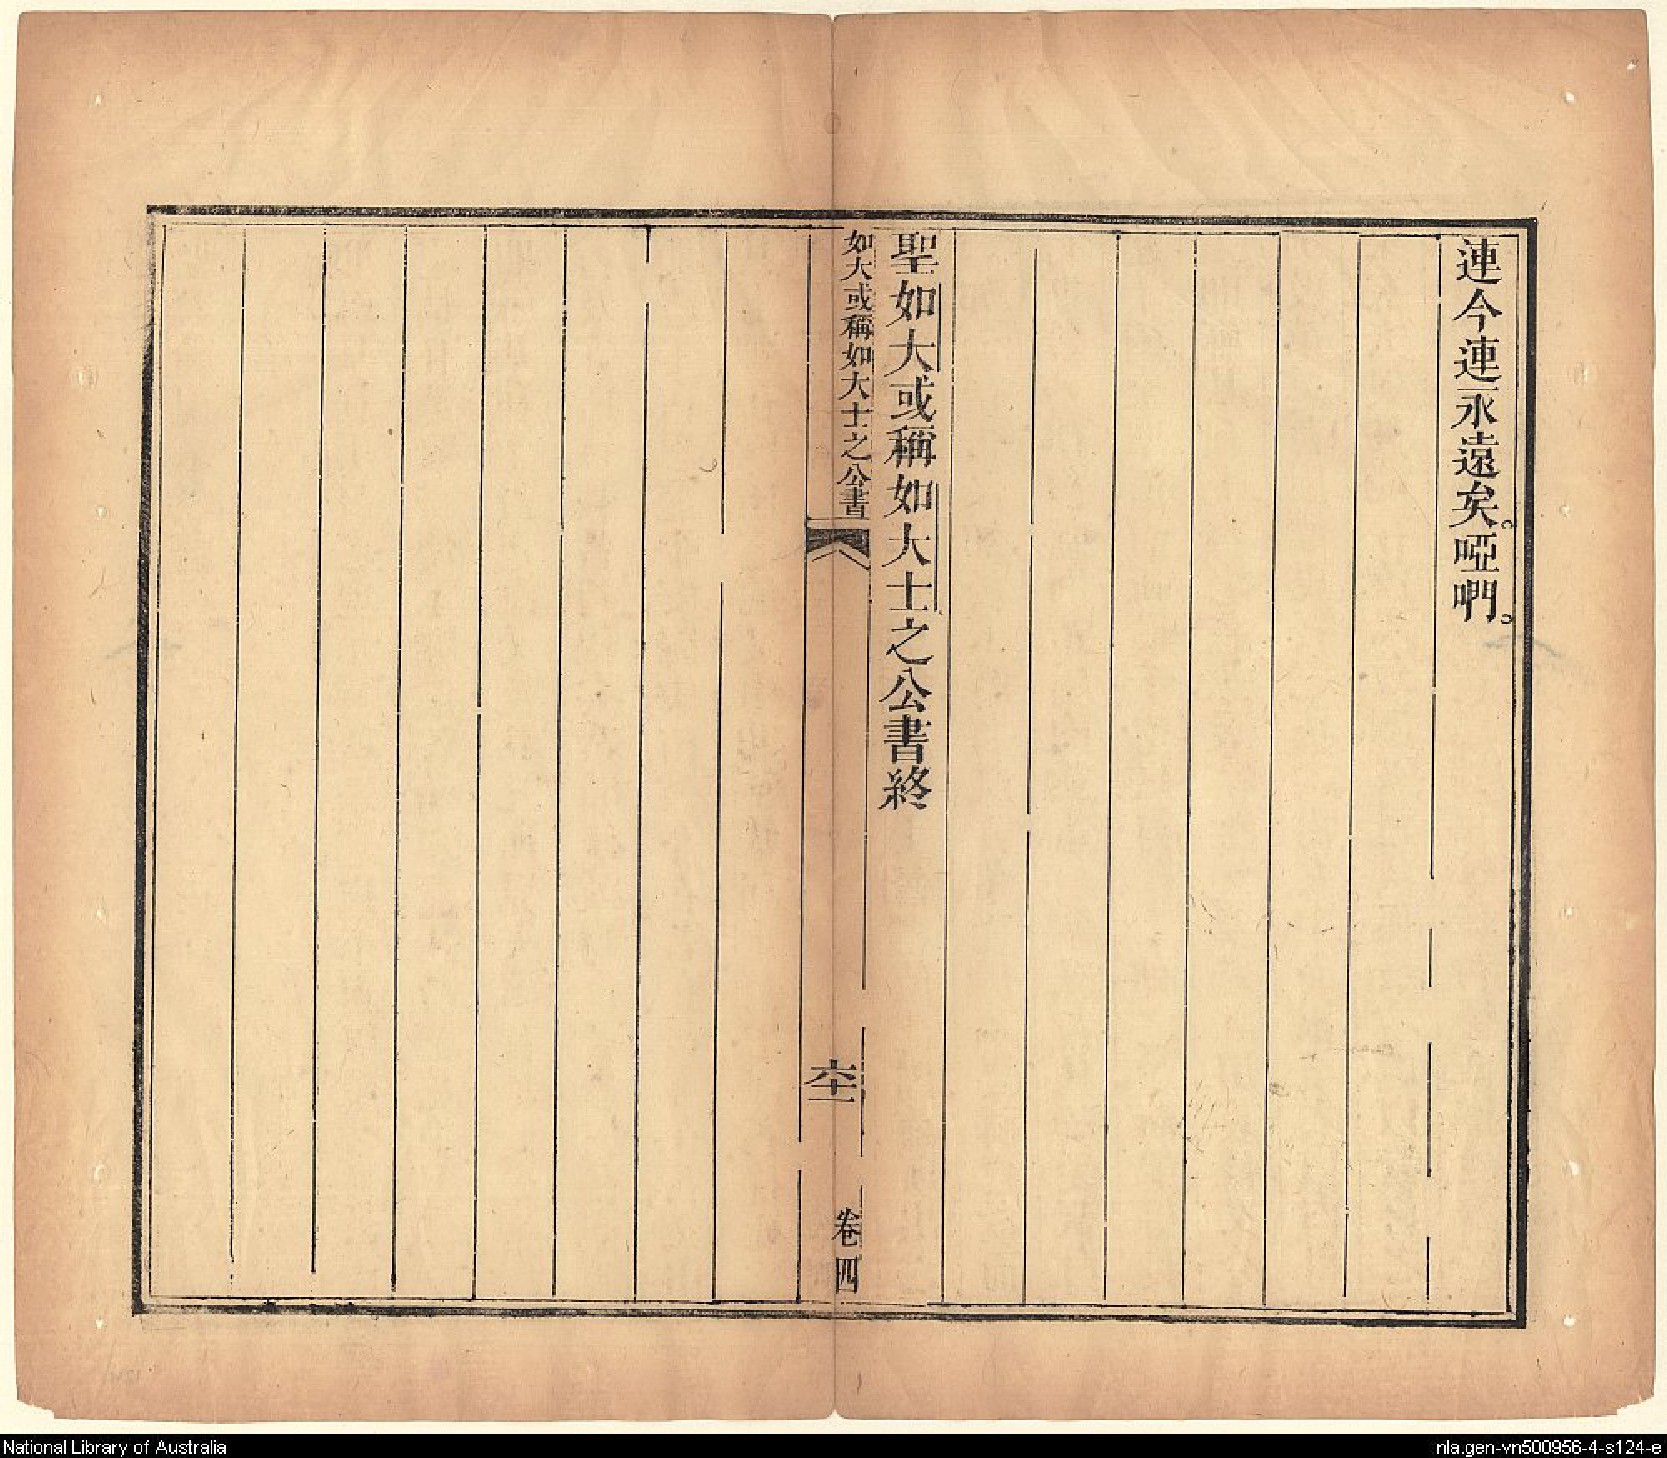 連今連永遠矣。啞唎。
聖如大或稱如大士之公書終
如大或稱如大士之公書
六十一
卷四
National Library of Australia
nla.gen-vn500956-4-s124-e